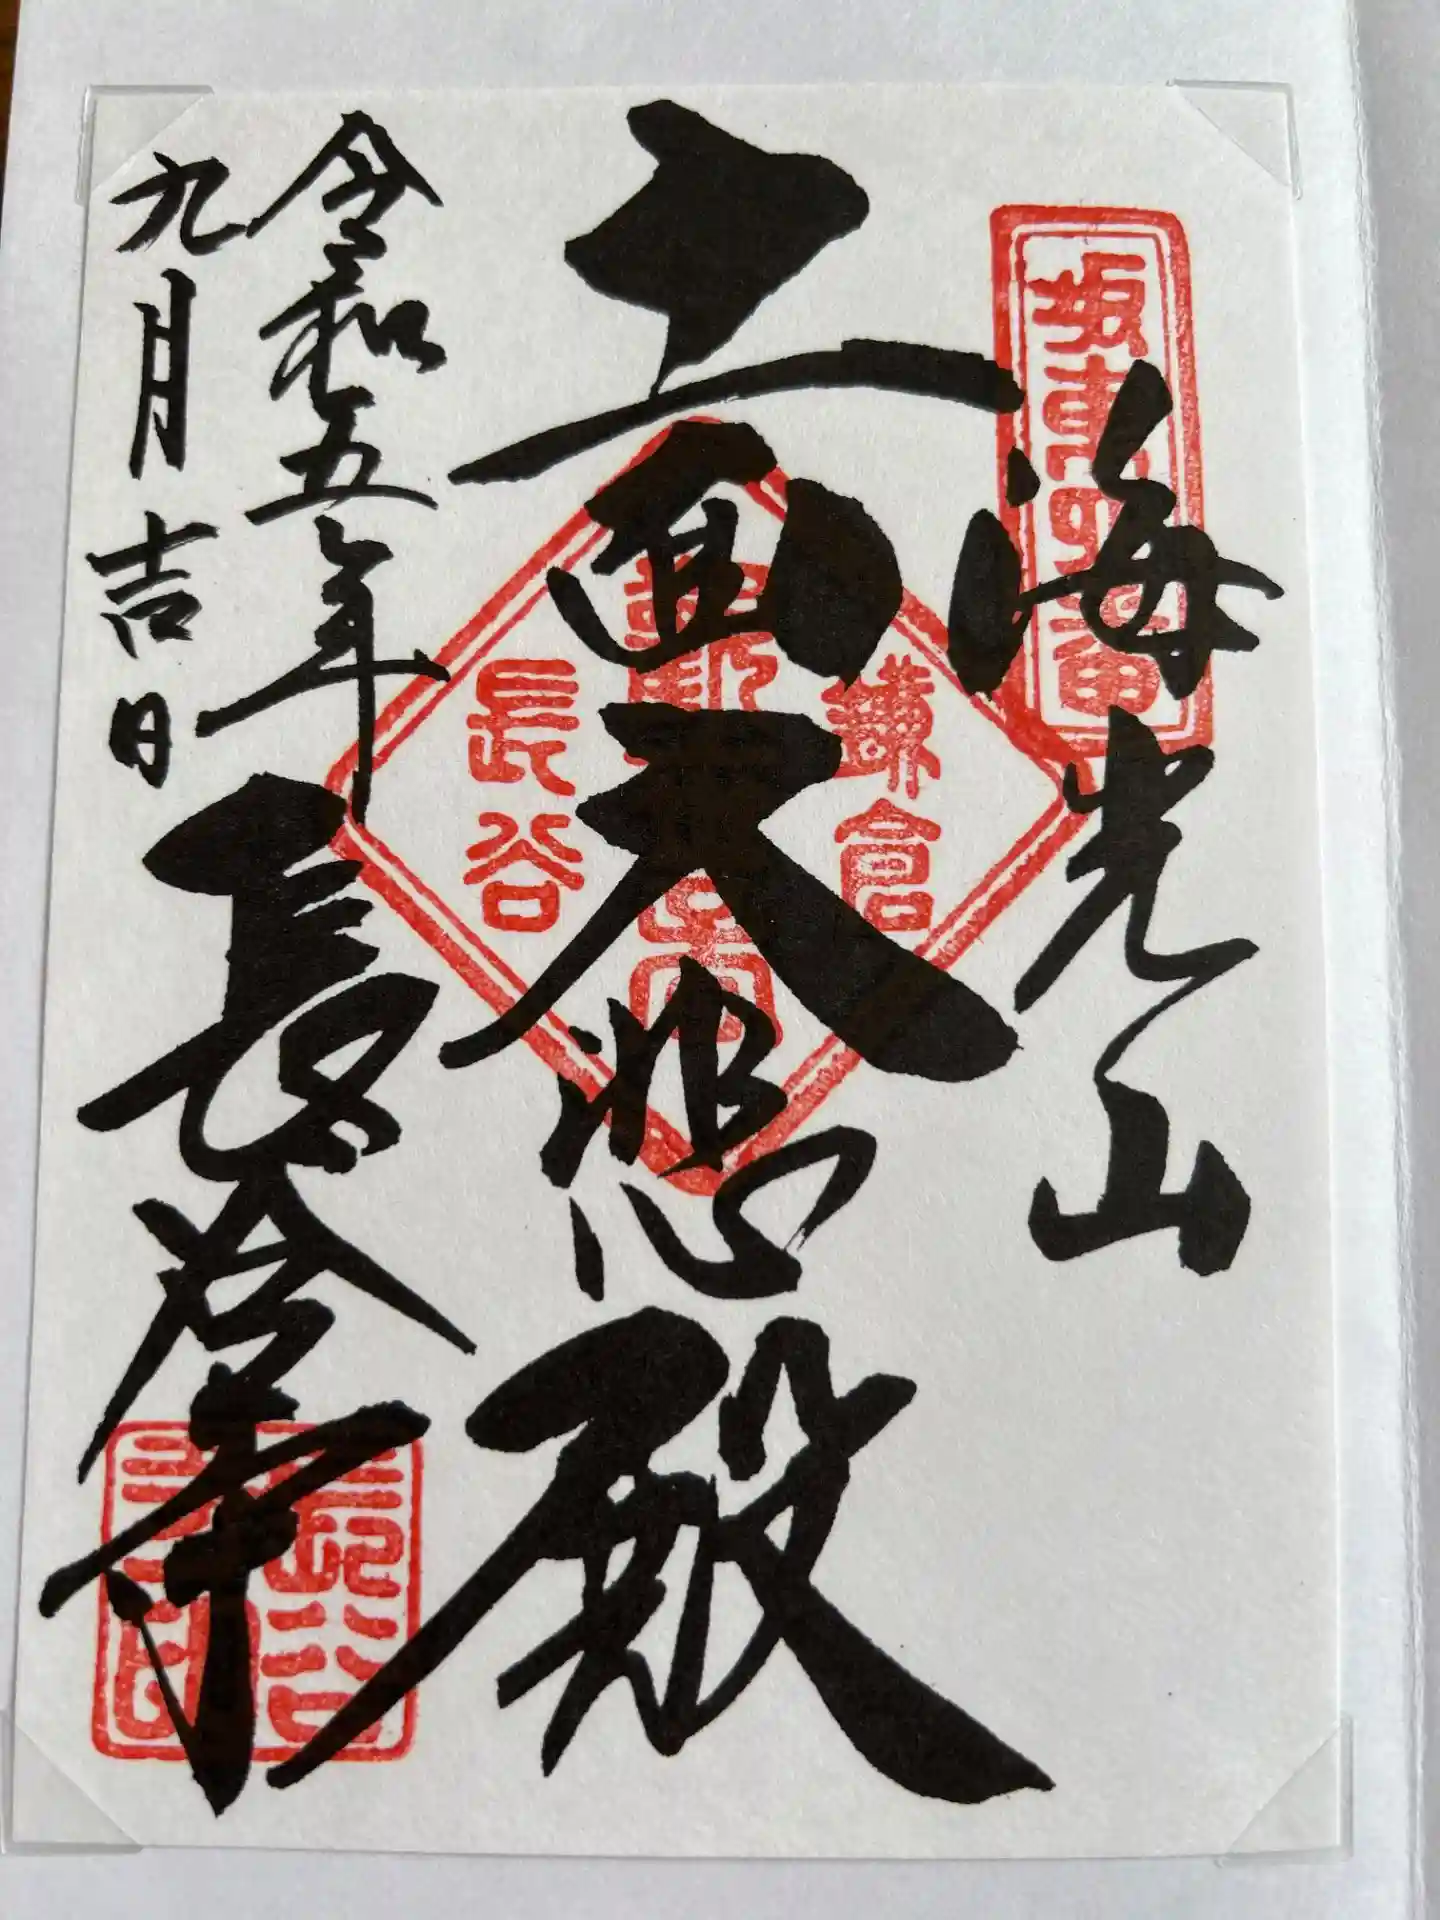 坂東四番
海光山
十一面大悲殿
鎌倉
長谷
令和五年
九月吉日
長谷寺
長谷
寺印